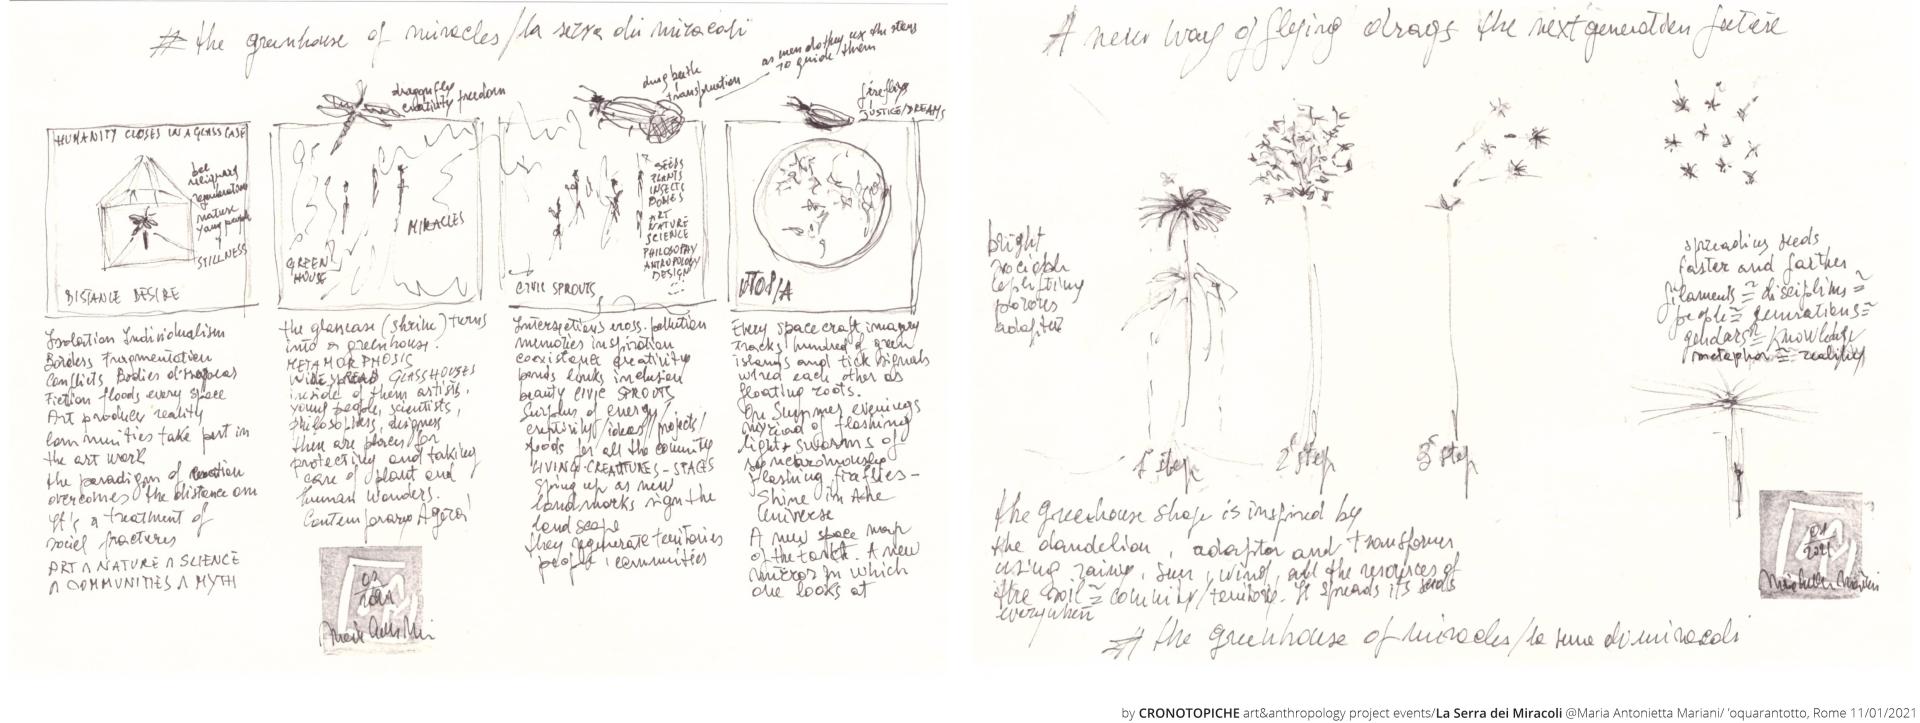 # the greenhouse of miracles/la serra dei miracoli
HUMANITY CLOSES IN A GLASS CASE
bee
reliquary
regeneration
nature
young people
STILLNESS
DISTANCE DESIRE
Isolation Individualism
Borders Fragmentation
Conflicts Bodies
Fiction floods every space
Art produces reality
Communities take part in
the art work
the paradigm of
overcomes the distance and
It's a treatment of
social fractures
ART ∧ NATURE ∧ SCIENCE
∧ COMMUNITIES ∧ MYTH
dragonfly
creativity freedom
MIRACLES
GREEN
HOUSE
the glasscase (shrine) turns
into a greenhouse.
METAMORPHOSIS
WIDESPREAD GLASSHOUSES
inside of them artists,
young people, scientists,
philosophers, designers
they are places for
protecting and taking
care of plant and
human wonders.
Contemporary Agorà
dung beetle
transformation
as men do they use the stars
to guide them
SEEDS
PLANTS
INSECTS
ART
NATURE
SCIENCE
PHILOSOPHY
ANTROPOLOGY
DESIGN
CIVIC SPROUTS
Intersections cross-pollution
memories inspiration
coexistence creativity
bonds links inclusion
beauty CIVIC SPROUTS
Surplus of energy/
creativity/ideas/projects/
foods for all the comunity
LIVING-CREATURES-SPACES
spring up as new
landmarks sign the
landscape
they regenerate territories
people, communities
fireflys
JUSTICE/DREAMS
UTOPIA
Every spacecraft imagery
tracks hundred of green
islands and tick signals
wired each other as
floating roots.
On Summer evenings
myriad of flashing
lights swarms of
flashing fireflies-
Shine in the
Universe
A new space map
of the Earth. A new
mirror in which
one looks at
A new way of flying drags the next generation future
bright
sociable
uplifting
porous
1° step
2° step
3° step
spreading seeds
faster and farther
filaments ≅ disciplines ≅
people ≅ generations ≅
genders ≅ knowledge
metaphor ≅ reality
the greenhouse shape is inspired by
the dandelion, adaptor and transformer
using rains, sun, wind, all the resources of
the soil ≅ community/territory. It spreads its seeds
everywhere
# the greenhouse of miracles/la serra dei miracoli
by CRONOTOPICHE art&anthropology project events/La Serra dei Miracoli @Maria Antonietta Mariani/ 'oquarantotto, Rome 11/01/2021